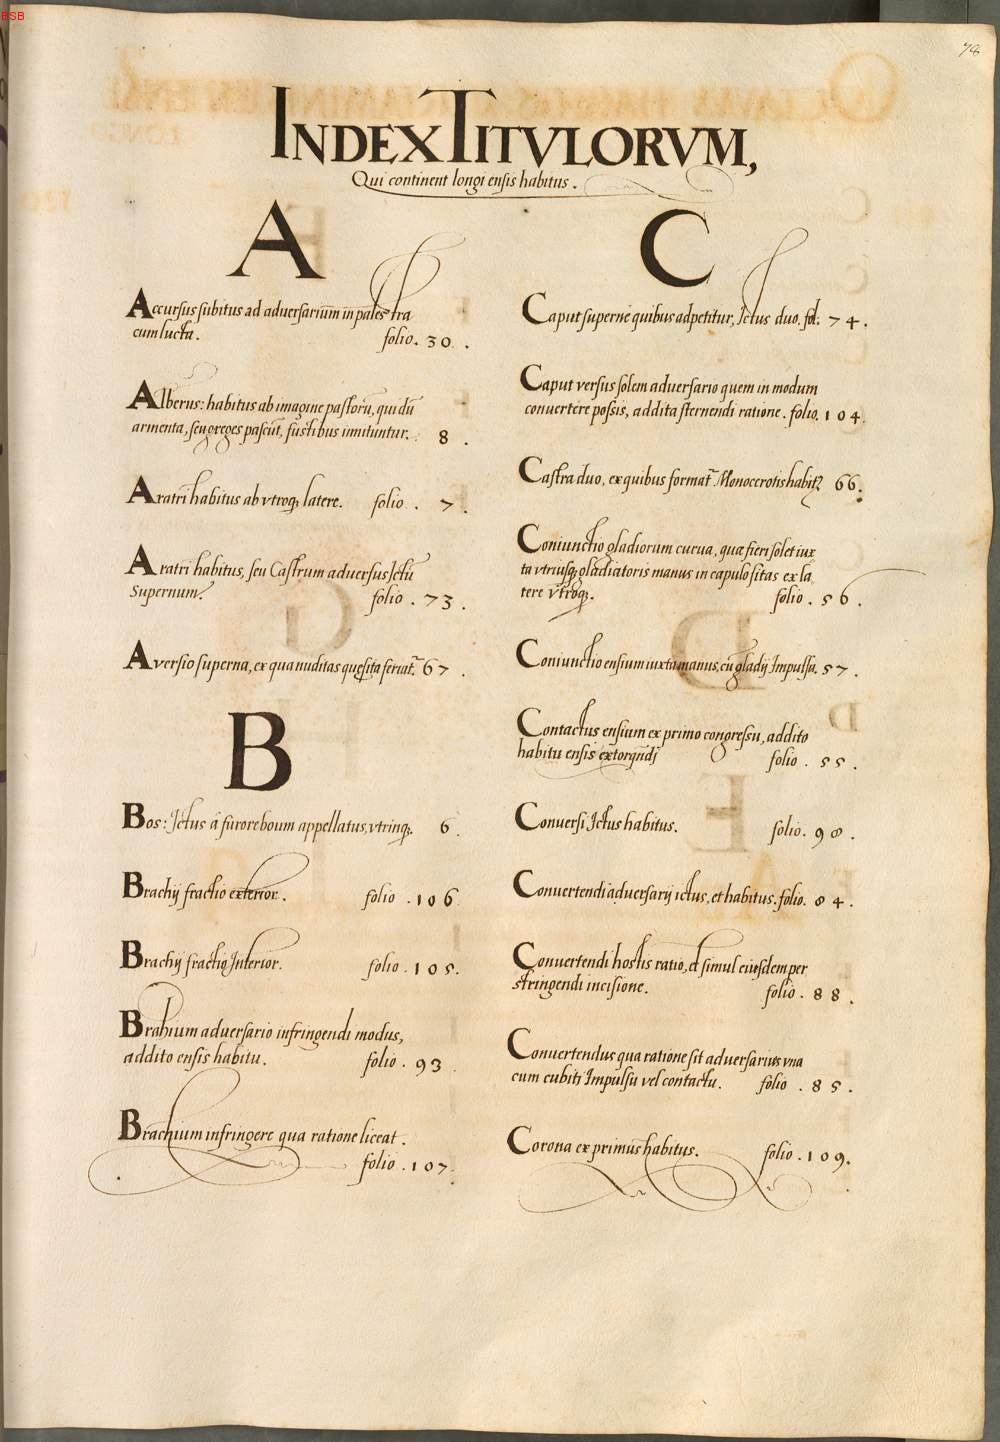 BSB
78
INDEX TITVLORVM,
Qui continent longi ensis habitus.
A
Accursus subitus ad adversariũm in pales tra
cum lucta. folio. 30.
Alberus: habitus ab imagine pastorũ, qui dũ
armenta, seu greges pascũt, fustibus innituntur. 8.
Aratri habitus ab vtroq; latere. folio. 7.
Aratri habitus, seu Castrum adversus Ictũ
Supernum. folio. 73.
Aversio superna, ex qua nuditas quęsita feriat. 67.
B
Bos: Ictus á furore boum appellatus, vtrinq;. 6.
Brachij fractio exterior. folio. 106
Brachij fractio Interior. folio. 105.
Brahium adversario infringendi modus,
addito ensis habitu. folio. 93
Brachium infringere qua ratione liceat.
folio. 107.
C
Caput supernè quibus adpetitur, Ictus duo. fol. 74.
Caput versus solem adversario quem in modum
convertere possis, addita sternendi ratione. folio. 104
Castra duo, ex quibus format Monocerotis habit 66.
Coniunctio gladiorum curua, qua fieri solet iux
ta vtriusq; gladiatoris manus in capulo sitas ex la
tere vtroq;. folio. 56.
Coniunctio ensium iuxta manus, cũ gladij Impulsu. 57.
Contactus ensium ex primo congressu, addito
habitu ensis extorqũdj folio. 55.
Conversi Ictus habitus. folio. 98.
Convertendi adversarij ictus, et habitus. folio. 84.
Convertendi hostis ratio, et simul eiusdem per
stringendi incisione. folio. 88.
Convertendus qua ratione sit adversarius vna
cum cubiti Impulsu vel contactu. folio. 85.
Corona ex primus habitus. folio. 109.